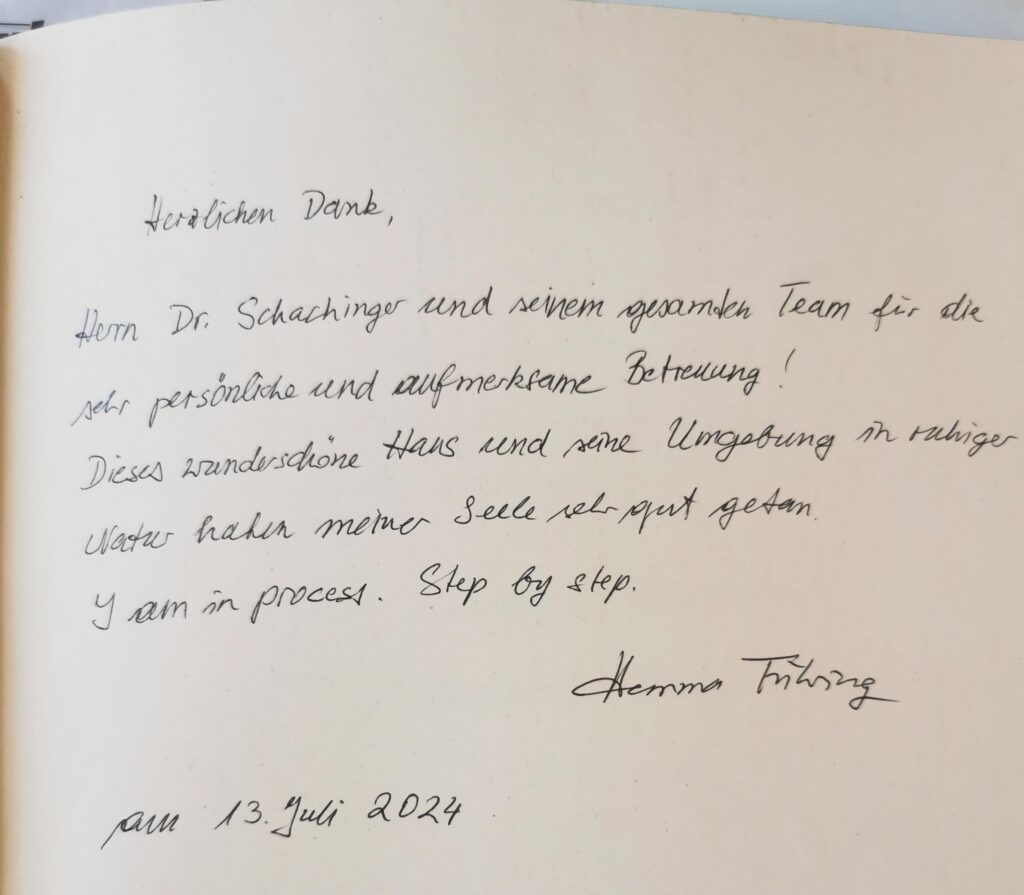 Herzlichen Dank,
Herrn Dr. Schachinger und seinem gesamten Team für die
sehr persönliche und aufmerksame Betreuung!
Dieses wunderschöne Haus und seine Umgebung in ruhiger
Natur haben meiner Seele sehr gut getan.
I am in process. Step by step.
Hemma
am 13. Juli 2024